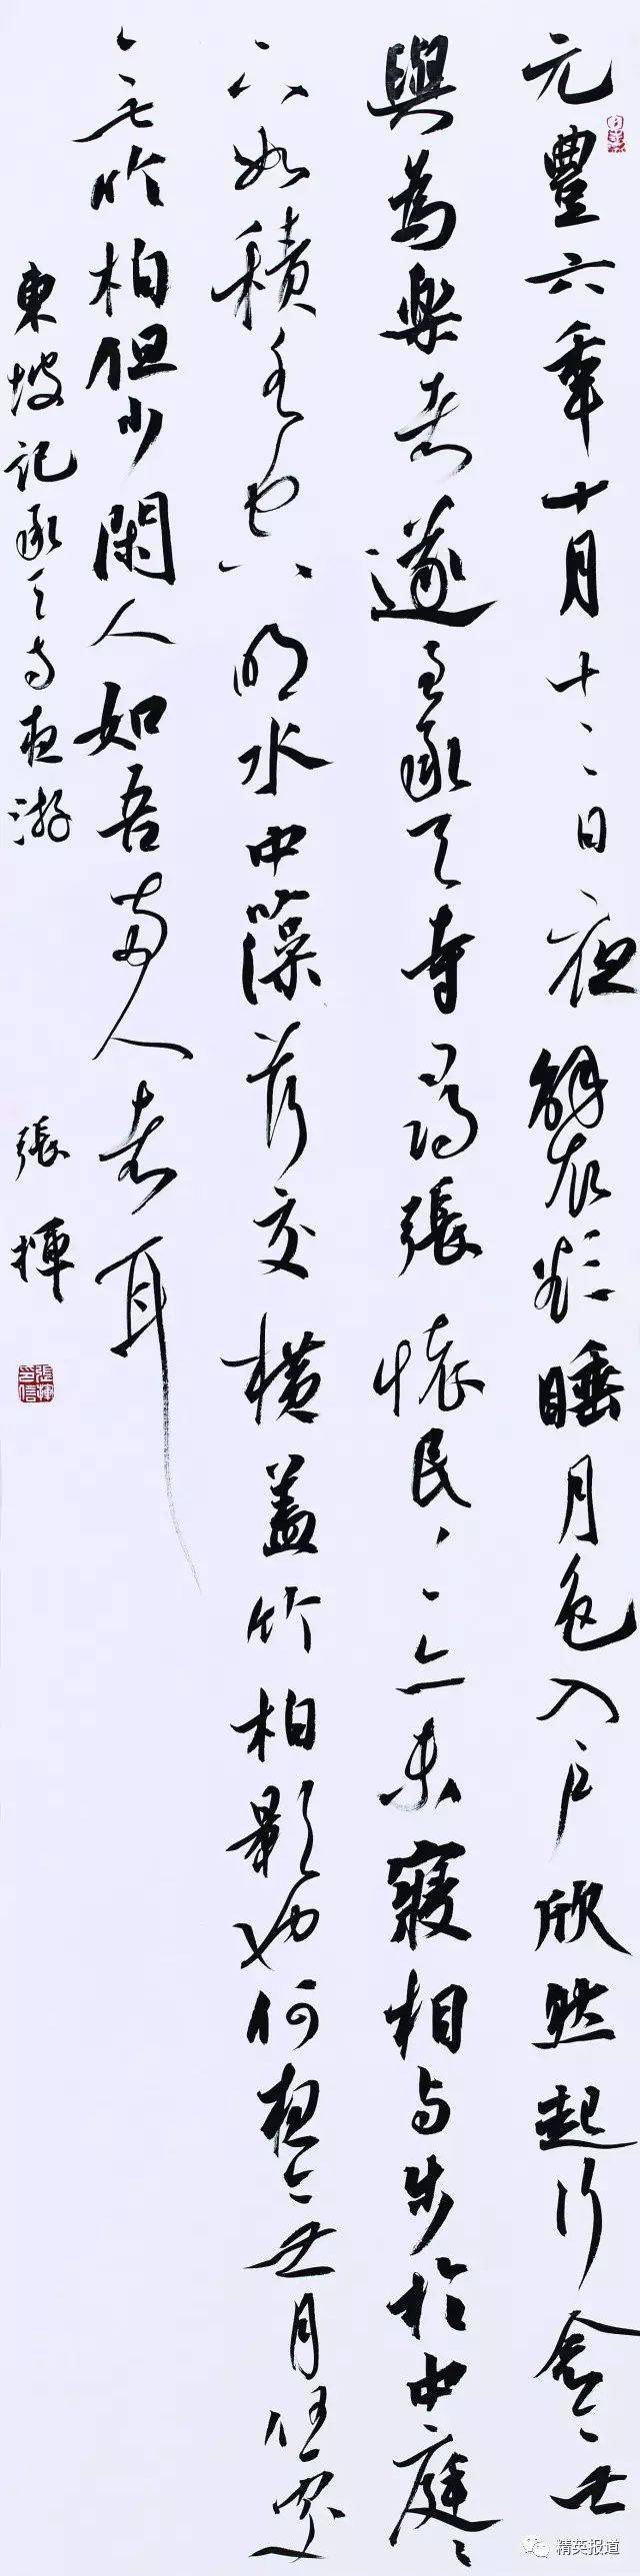 元豐六年十月十二日夜解衣欲睡月色入户欣然起行念無
與為樂者遂至承天寺尋張懷民〻亦未寢相与步於中庭〻
下如積水空明水中藻荇交橫蓋竹柏影也何夜無月何處
無竹柏但少閑人如吾兩人者耳
東坡記承天寺夜游 張揮
張揮印信
精英报道